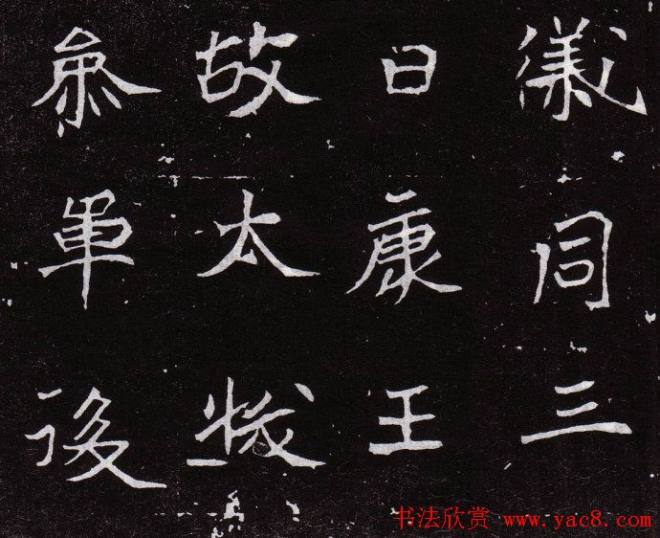 儀同三
日康王
故太
叅軍後
书法欣赏 www.yac8.com